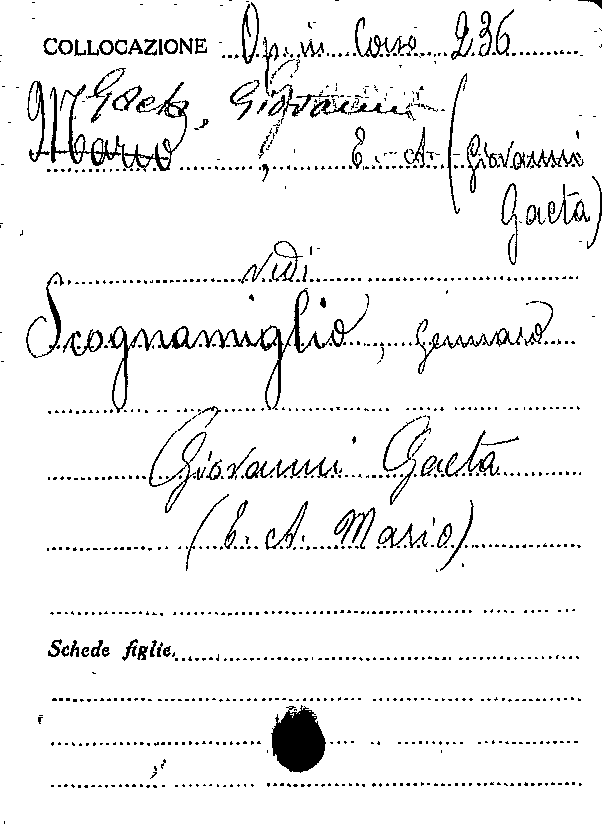 COLLOCAZIONE Op. in Corso 236
Gaeta, Giovanni
Mario, E. A. (Giovanni
Gaeta)
vedi
Scognamiglio, Gennaro
Giovanni Gaeta
(E. A. Mario)
Schede figlie.